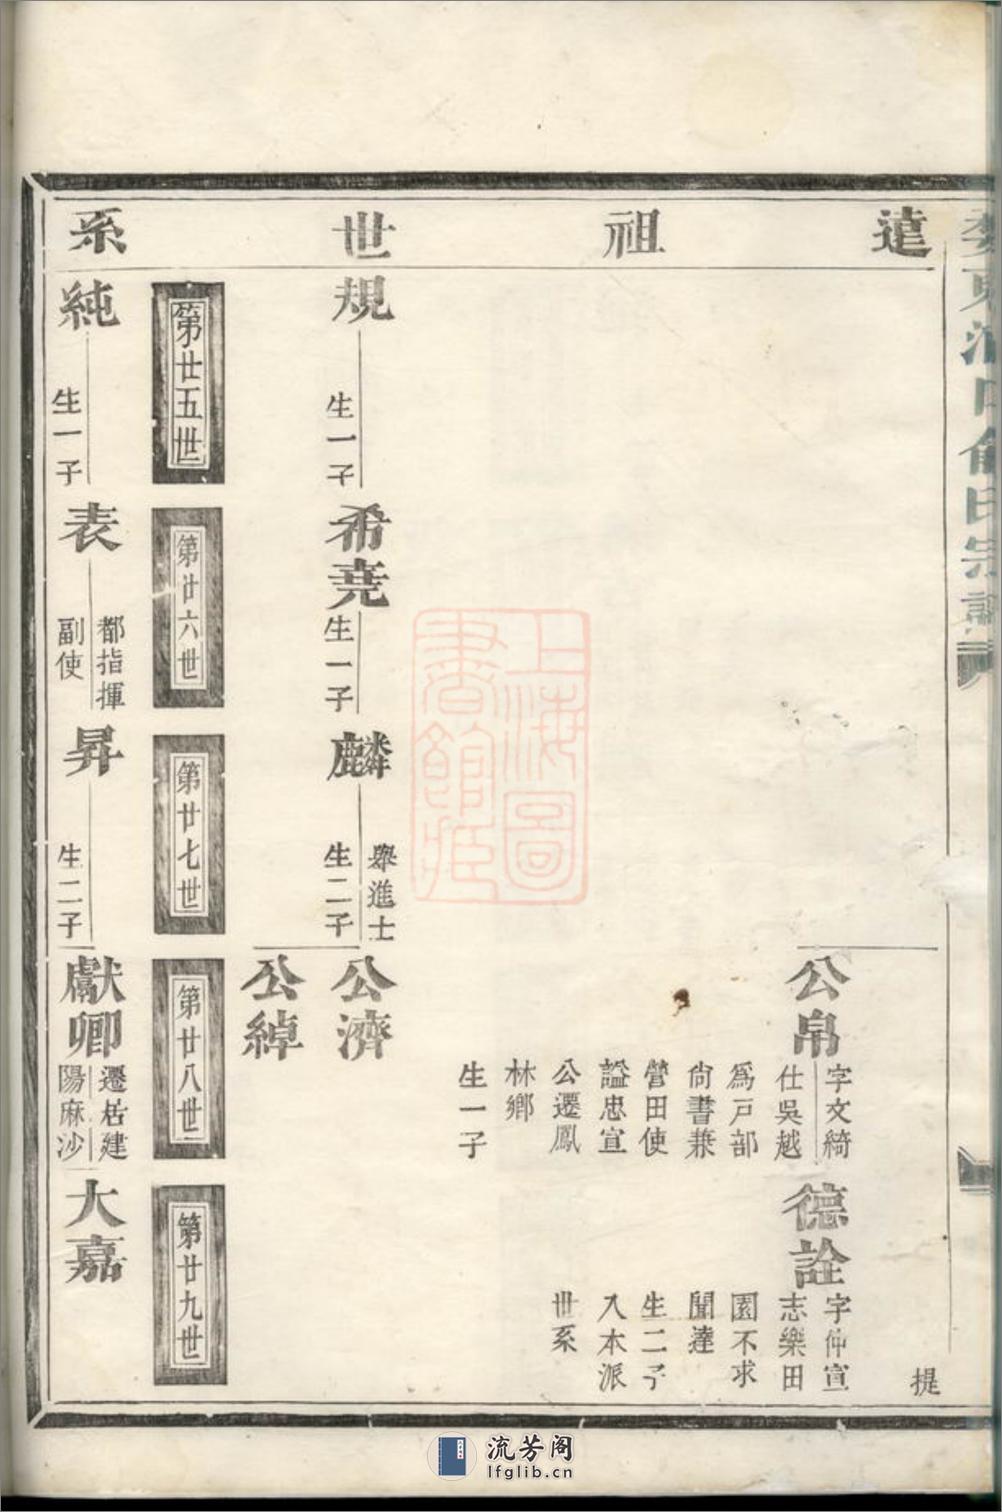 遠祖世系
公帛
字文綺
仕吳越
爲戸部
尙書兼
營田使
謚忠宣
公遷鳳
林鄉
生一子
德詮
字仲宣
志樂田
園不求
聞達
生二子
入本派
世系
提
規
生一子
希堯
生一子
麟
舉進士
生二子
公濟
公綽
第廿五世
第廿六世
第廿七世
第廿八世
第廿九世
純
生一子
表
都指揮
副使
昇
生二子
獻卿
遷居建
陽麻沙
大嘉
上海圖
書館藏
流芳阁
lfglib.cn